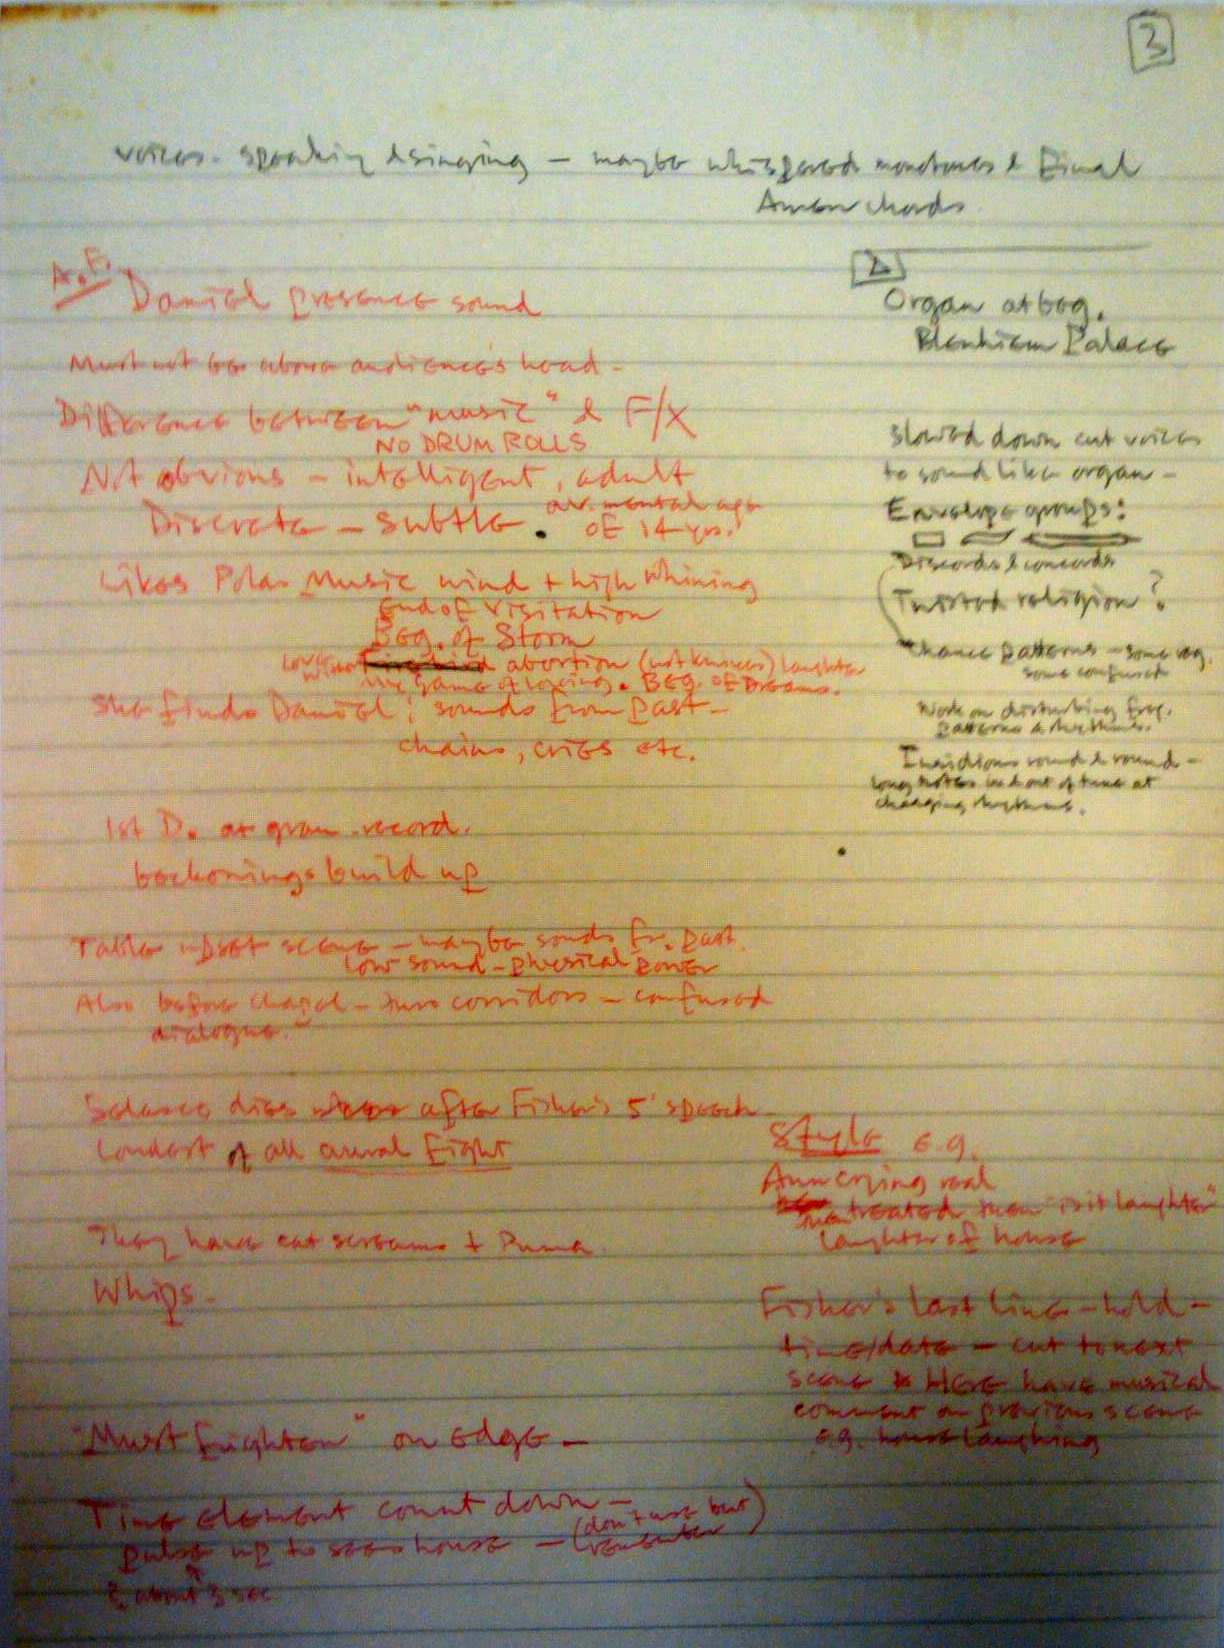 3
voices - speaking & singing - maybe whispered monotones & Final
Amen chords
A.E.
Daniel presence sound
Must not be above audience's head -
Difference between "music" & F/X
NO DRUM ROLLS
Not obvious - intelligent, adult
av. mental age
Discrete - subtle. of 14 yrs!
Likes Polar Music wind + high whining
End of Visitation
Beg. of Storm
abortion (not knives) laughter
game of loving. Beg. of Dreams.
She finds Daniel: sounds from past -
chains, cries etc.
1st D. at gram. record.
beckonings build up
Table upset scene - maybe sounds fr. past.
low sound - physical power
Also before chapel - two corridors - confused
dialogue.
dies after Fisher's 5' speech -
Loudest of all aural fight
They have cat screams + Puma
Whips -
"Must frighten" on edge -
Time element count down -
pulse up to see house - (don't use but
remember)
about 3 sec
2
Organ at beg.
Blenheim Palace
Slowed down cut voices
to sound like organ -
Envelope groups:
Discords & concords
Twisted religion?
Chance patterns - some reg.
some confused
Work on disturbing freq.
patterns & rhythms.
Insidious round & round -
long notes in & out of tune at
changing rhythms.
Style e.g.
Ann crying real
treated then "is it laughter"
laughter of house
Fisher's last line - hold -
time/date - cut to next
scene & HERE have musical
comment on previous scene
e.g. house laughing